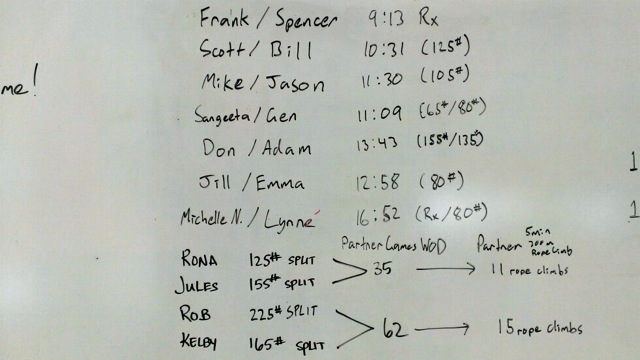 Frank / Spencer 9:13 Rx
Scott / Bill 10:31 (125#)
me!
Mike / Jason 11:30 (105#)
Sangeeta / Gen 11:09 (65#/80#)
Don / Adam 13:43 (155#/135)
1
Jill / Emma 12:58 (80#)
1
Michelle N. / Lynne 16:52 (Rx/80#)
Partner Games WOD
Partner 5min 200m Rope Climb
RONA 125# SPLIT
JULES 155# SPLIT
35 → 11 rope climbs
ROB 225# SPLIT
KELBY 165# SPLIT
62 → 15 rope climbs